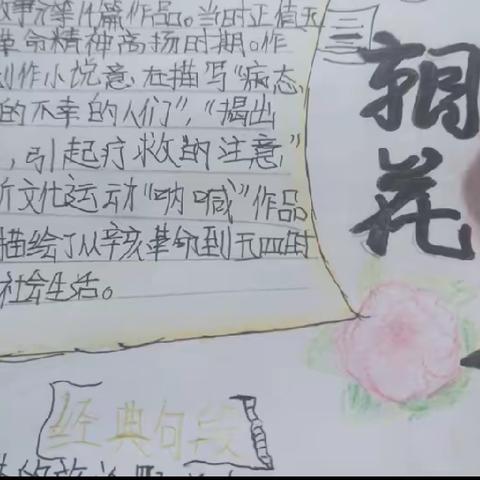 故事》等14篇作品。当时正值五
革命精神高扬时期。作
创作小说意在描写"病态
的不幸的人们","揭出
,引起疗救的注意,"
新文化运动"呐喊"作品
描绘了从辛亥革命到五四时
社会生活。
三
朝
花
经典句段